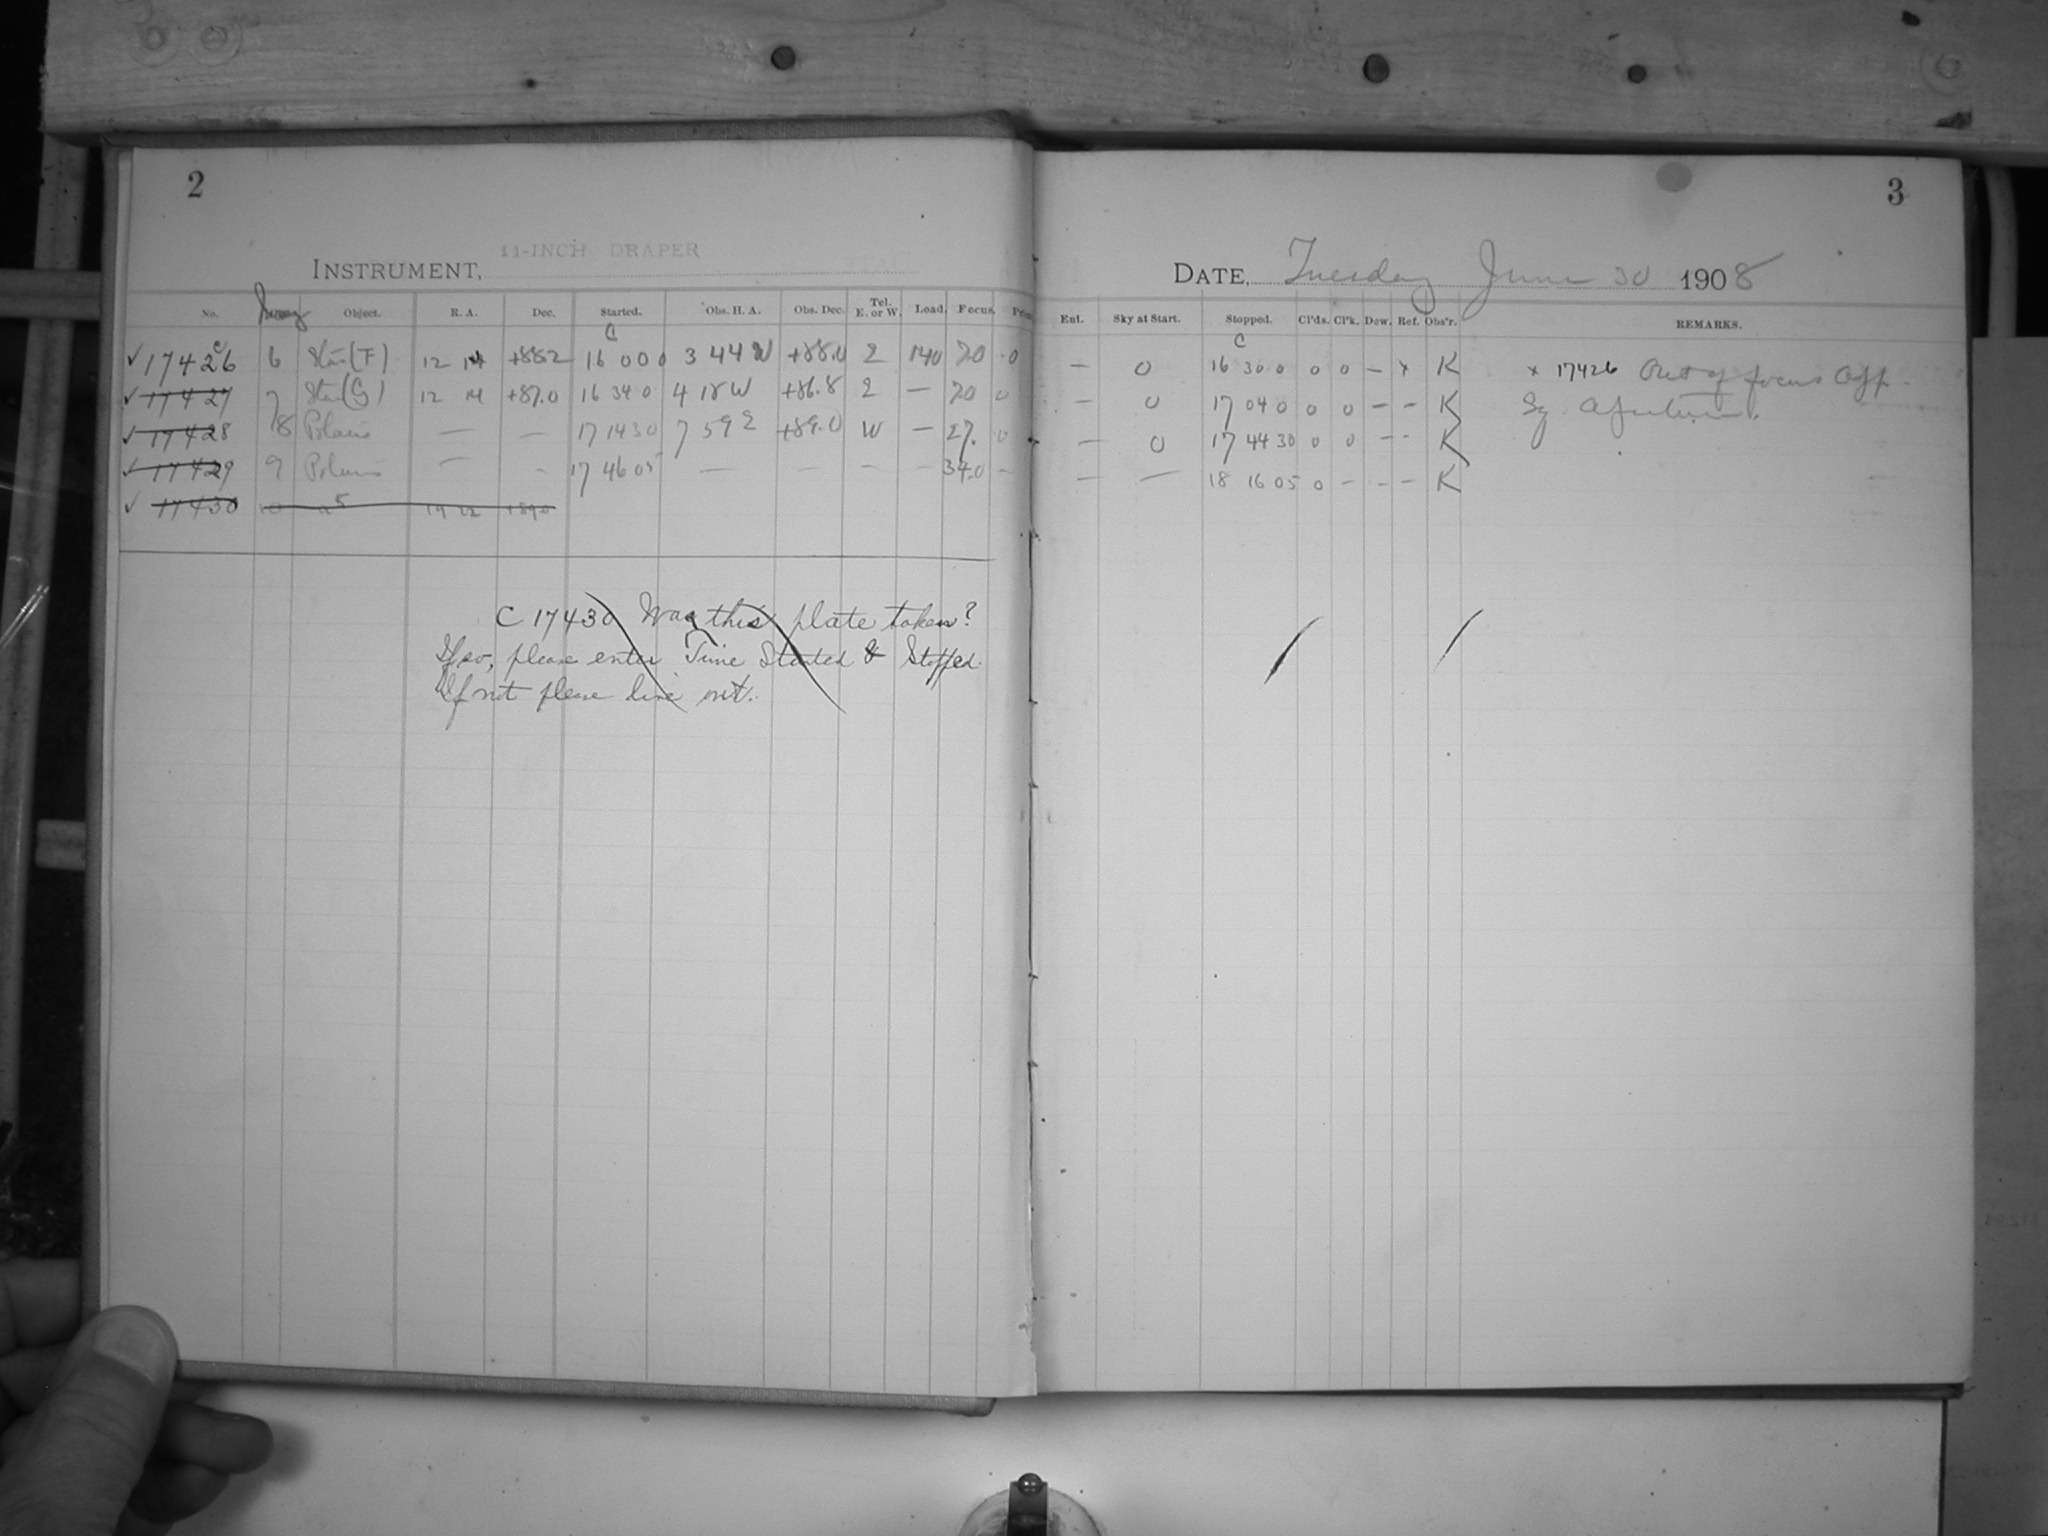 2
INSTRUMENT, 11-INCH DRAPER
No. Object. R. A. Dec. Started. Obs. H. A. Obs. Dec. Tel. E. or W. Load. Focus.
C C
✓ 17426 6 Star(F) 12 14 +88.2 16 00 0 3 44 W +88.0 E 140 20 0
✓ 17427 7 Star(G) 12 14 +87.0 16 34 0 4 18 W +86.8 E — 20 0
✓ 17428 8 Polaris — — 17 14 30 7 59 E +89.0 W — 27. 0
✓ 17429 9 Polaris — — 17 46 05 — — — — 34.0 —
✓ 17430 +89.0
C 17430 Was this plate taken?
If so, please enter Time Started & Stopped.
If not please line out.
3
DATE, Tuesday June 30 1908
Ent. Sky at Start. Stopped. Cl'ds. Cl'k. Dew. Ref. Obs'r. REMARKS.
C
— 0 16 30 0 0 0 — x K x 17426 Out of focus
— 0 17 04 0 0 0 — — K
— 0 17 44 30 0 0 — — K
— — 18 16 05 0 — — — K